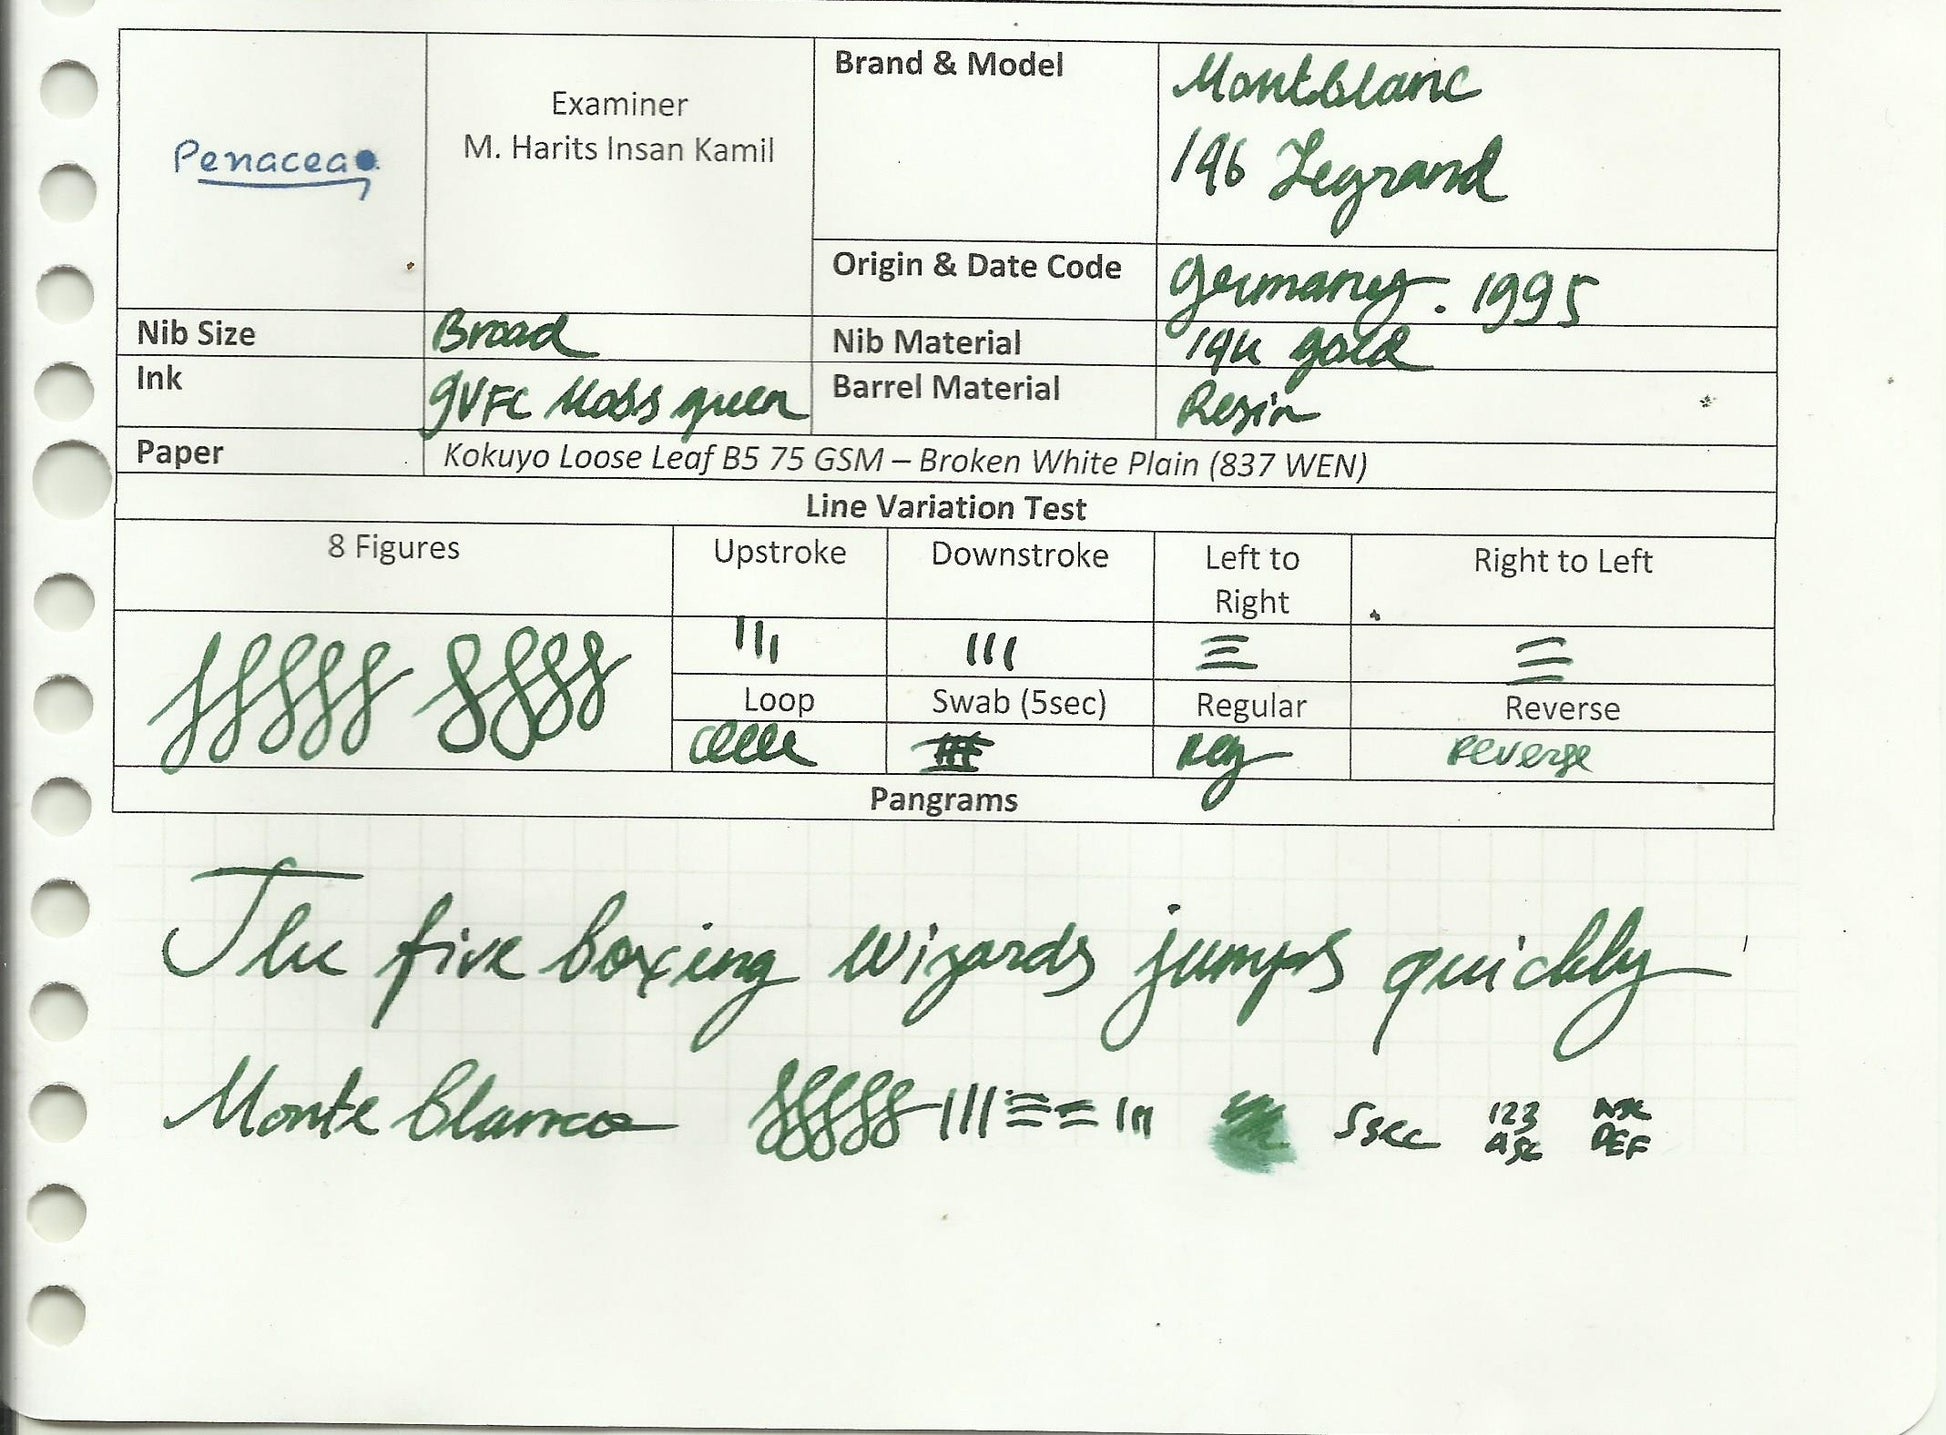 Penacea
Examiner
M. Harits Insan Kamil
Brand & Model
Montblanc
146 Legrand
Origin & Date Code
Germany. 1995
Nib Size
Broad
Nib Material
14k gold
Ink
GVFC Moss green
Barrel Material
Resin
Paper
Kokuyo Loose Leaf B5 75 GSM – Broken White Plain (837 WEN)
Line Variation Test
8 Figures
Upstroke
Downstroke
Left to
Right
Right to Left
Loop
Swab (5sec)
Regular
Reverse
Reg
Reverse
Pangrams
The five boxing wizards jumps quickly
Monte Blanco
5sec
123
ABC
DEF